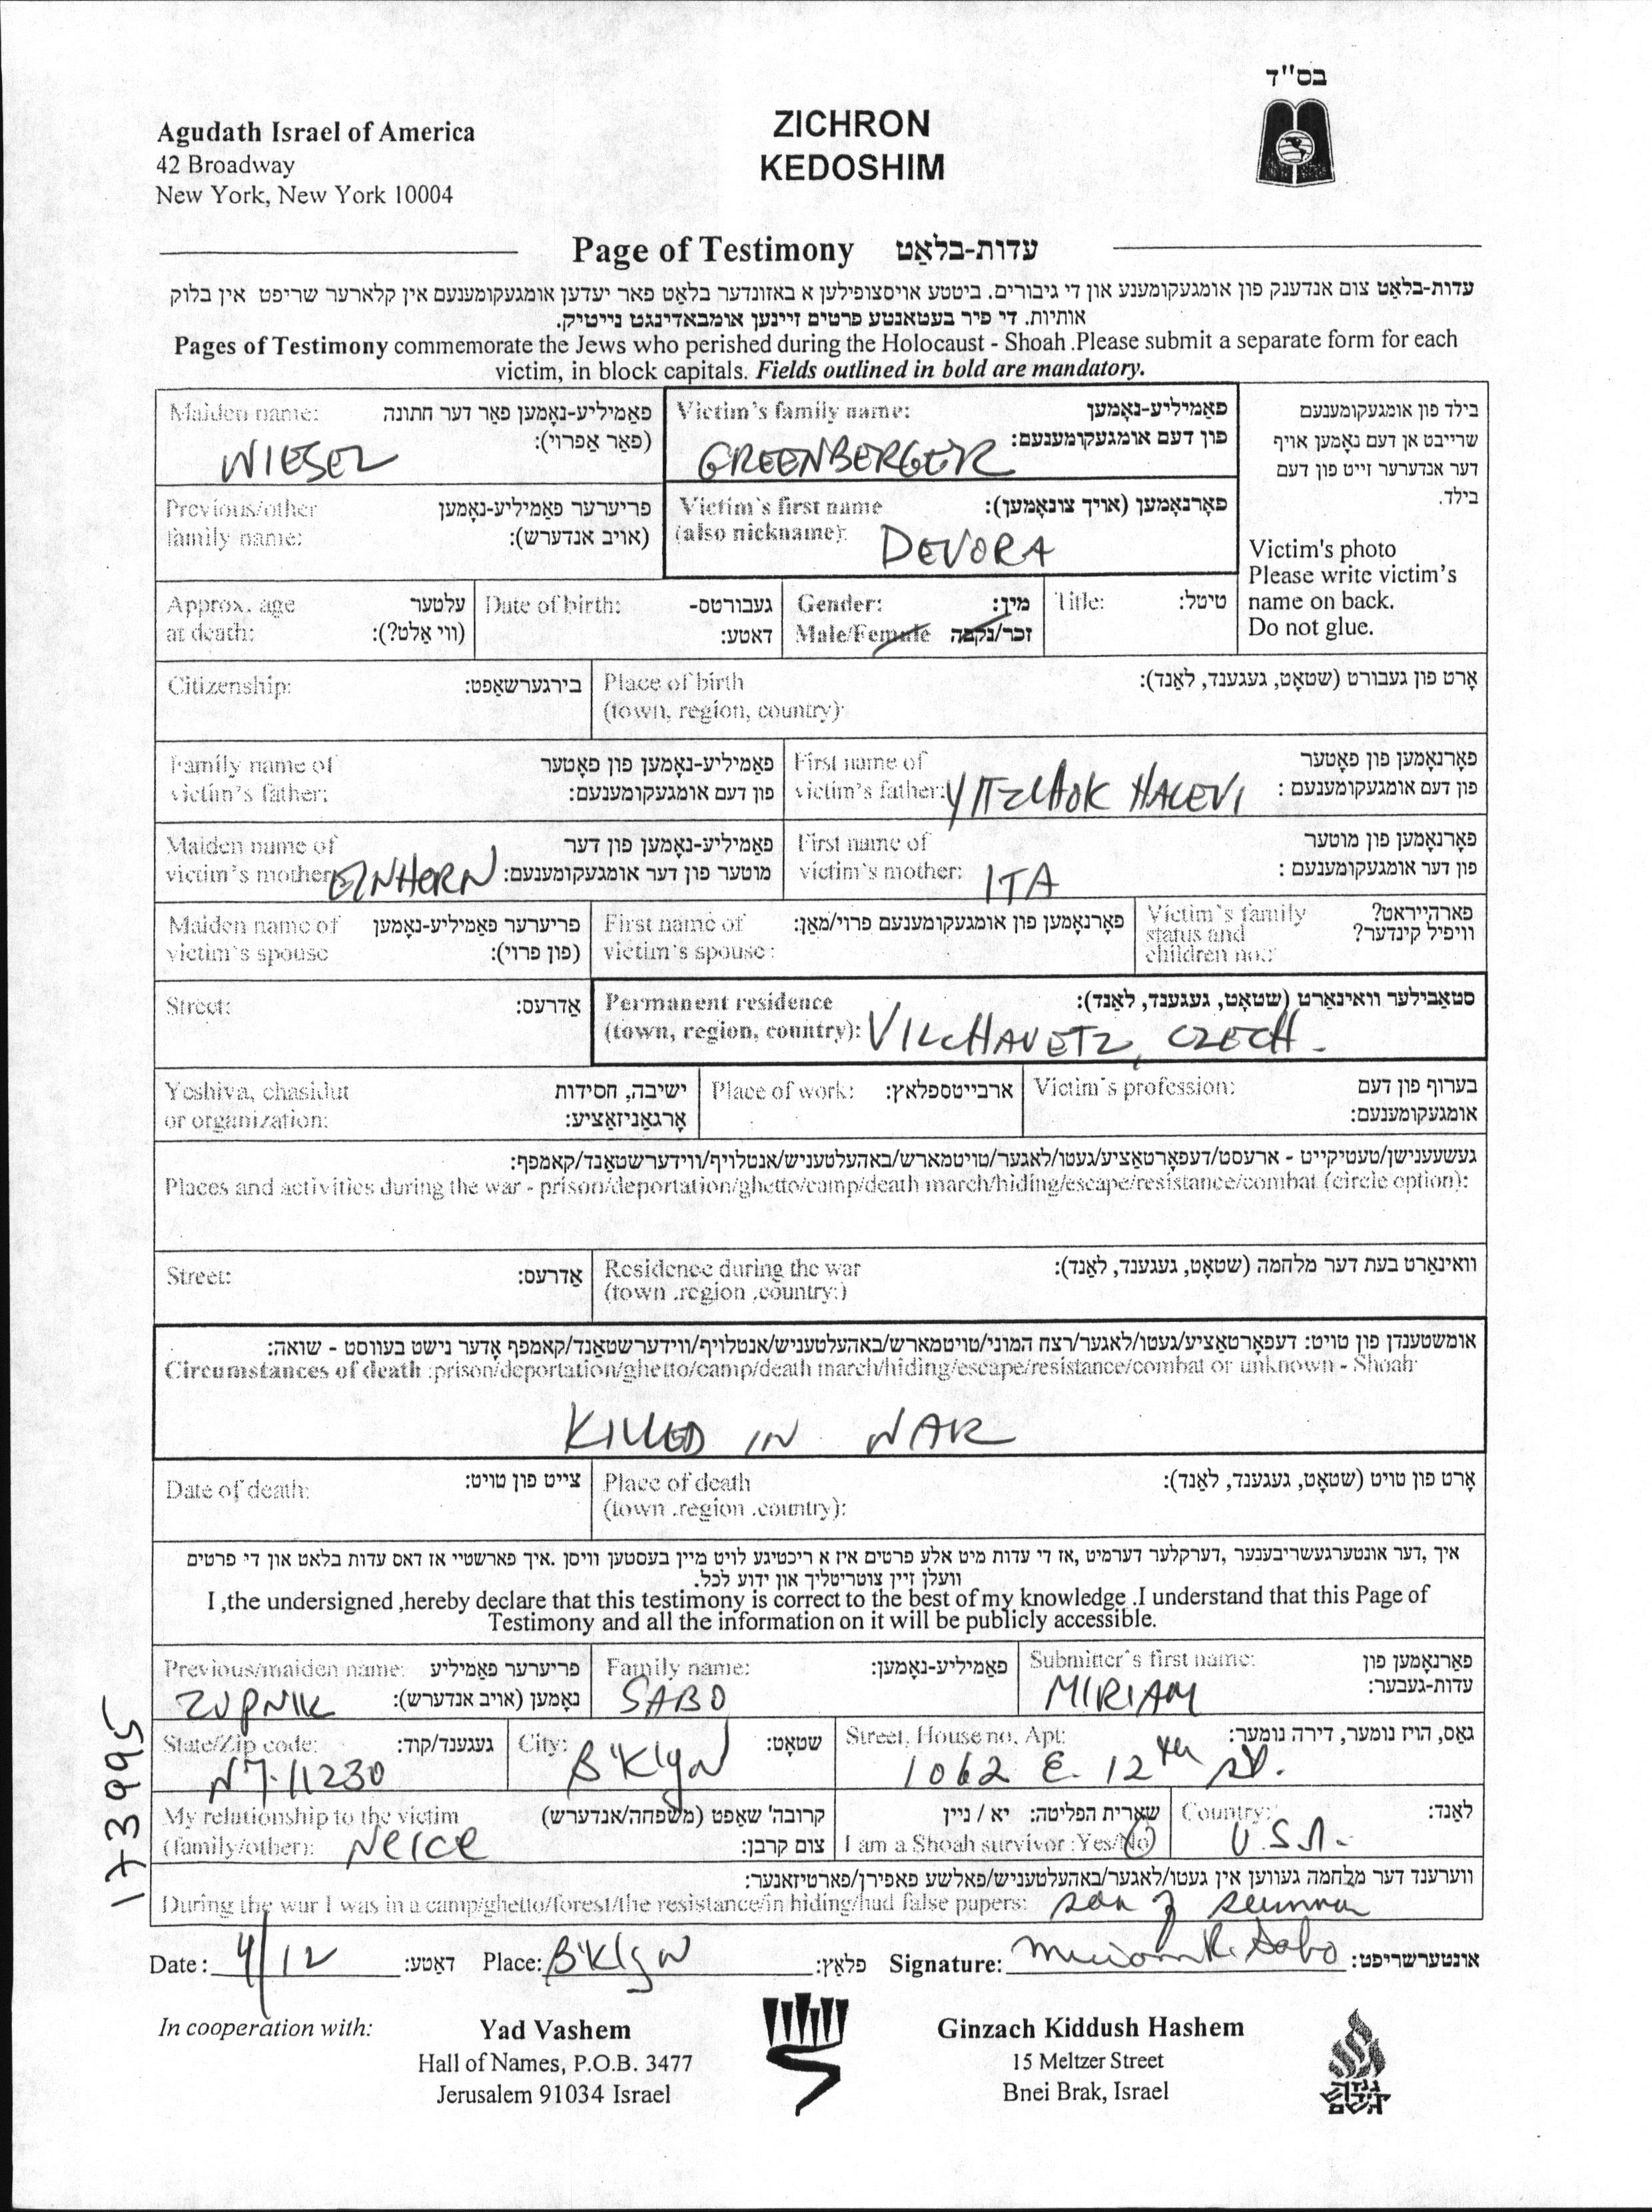 בס"ד
Agudath Israel of America
42 Broadway
New York, New York 10004
ZICHRON
KEDOSHIM
Page of Testimony עדות-בלאַט
עדות-בלאַט צום אנדענק פון אומגעקומענע און די גיבורים. ביטטע אויסצופילען א באזונדער בלאַט פאר יעדען אומגעקומענעם אין קלארער שריפט אין בלוק
אותיות. די פיר בעטאנטע פרטים זיינען אומבאדינגט נייטיק.
Pages of Testimony commemorate the Jews who perished during the Holocaust - Shoah .Please submit a separate form for each
victim, in block capitals. Fields outlined in bold are mandatory.
Maiden name: פאַמיליע-נאָמען פאַר דער חתונה
(פאַר אַפרוי):
WIESEL
Victim's family name: פאַמיליע-נאָמען
פון דעם אומגעקומענעם:
GREENBERGER
Previous/other פריערער פאַמיליע-נאָמען
family name: (אויב אנדערש):
Victim's first name פאָרנאָמען (אויך צונאָמען):
(also nickname): DEVORA
בילד פון אומגעקומענעם
שרייבט אן דעם נאָמען אויף
דער אנדערער זייט פון דעם
בילד.
Victim's photo
Please write victim's
name on back.
Do not glue.
Approx. age עלטער
at death: (ווי אַלט?):
Date of birth: געבורטס-
דאטע:
Gender: מין:
Male/Female זכר/נקבה
Title: טיטל:
Citizenship: בירגערשאַפט:
Place of birth אָרט פון געבורט (שטאָט, געגענד, לאַנד):
(town, region, country):
Family name of פאַמיליע-נאָמען פון פאָטער
victim's father: פון דעם אומגעקומענעם:
First name of פאָרנאָמען פון פאָטער
victim's father: YITZCHOK HALEVI פון דעם אומגעקומענעם :
Maiden name of פאַמיליע-נאָמען פון דער
victim's mother EINHORN מוטער פון דער אומגעקומענעם:
First name of פאָרנאָמען פון מוטער
victim's mother: ITA פון דער אומגעקומענעם :
Maiden name of פריערער פאַמיליע-נאָמען
victim's spouse (פון פרוי):
First name of פאָרנאָמען פון אומגעקומענעם פרוי/מאַן:
victim's spouse :
Victim's family פארהייראט?
status and וויפיל קינדער?
children no.:
Street: אַדרעס:
Permanent residence סטאַבילער וואוינאַרט (שטאָט, געגענד, לאַנד):
(town, region, country): VILCHAVETZ, CZECH.
Yeshiva, chasidut ישיבה, חסידות
or organization: אָרגאַניזאַציע:
Place of work: ארבייטספלאץ:
Victim's profession: בערוף פון דעם
אומגעקומענעם:
געשעענישן/טעטיקייט - ארעסט/דעפאָרטאַציע/געטו/לאגער/טויטמארש/באהעלטעניש/אנטלויף/ווידערשטאַנד/קאמפף:
Places and activities during the war - prison/deportation/ghetto/camp/death march/hiding/escape/resistance/combat (circle option):
Street: אַדרעס:
Residence during the war וואוינאַרט בעת דער מלחמה (שטאָט, געגענד, לאַנד):
(town .region .country:)
אומשטענדן פון טויט: דעפאָרטאַציע/געטו/לאגער/רצח המוני/טויטמארש/באהעלטעניש/אנטלויף/ווידערשטאַנד/קאמפף אָדער נישט בעווסט - שואה:
Circumstances of death :prison/deportation/ghetto/camp/death march/hiding/escape/resistance/combat or unknown - Shoah:
KILLED IN WAR
Date of death: צייט פון טויט:
Place of death אָרט פון טויט (שטאָט, געגענד, לאַנד):
(town .region .country):
איך ,דער אונטערגעשריבענער ,דערקלער דערמיט ,אז די עדות מיט אלע פרטים איז א ריכטיגע לויט מיין בעסטען וויסן .איך פארשטיי אז דאס עדות בלאט און די פרטים
וועלן זיין צוטריטליך און ידוע לכל.
I ,the undersigned ,hereby declare that this testimony is correct to the best of my knowledge .I understand that this Page of
Testimony and all the information on it will be publicly accessible.
Previous/maiden name: פריערער פאַמיליע
ZUPNIK נאָמען (אויב אנדערש):
Family name: פאַמיליע-נאָמען:
SABO
Submitter's first name: פאָרנאָמען פון
עדות-געבער:
MIRIAM
State/Zip code: געגענד/קוד:
NY. 11230
City: שטאָט:
B'Klyn
Street, House no, Apt: גאַס, הויז נומער, דירה נומער:
1062 E. 12th St.
My relationship to the victim קרובה' שאַפט (משפחה/אנדערש)
(family/other): Neice צום קרבן:
שארית הפליטה: יא / ניין
I am a Shoah survivor :Yes/No
Country: לאַנד:
U.S.A.
ווערענד דער מלחמה געווען אין געטו/לאגער/באהעלטעניש/פאלשע פאפירן/פארטיזאנער:
During the war I was in a camp/ghetto/forest/the resistance/in hiding/had false papers:
173995
Date: 4/12 דאטע: Place: B'Klyn פלאַץ: Signature: Miriam R. Sabo אונטערשריפט:
In cooperation with:
Yad Vashem
Hall of Names, P.O.B. 3477
Jerusalem 91034 Israel
Ginzach Kiddush Hashem
15 Meltzer Street
Bnei Brak, Israel
גנזך
קידוש
השם